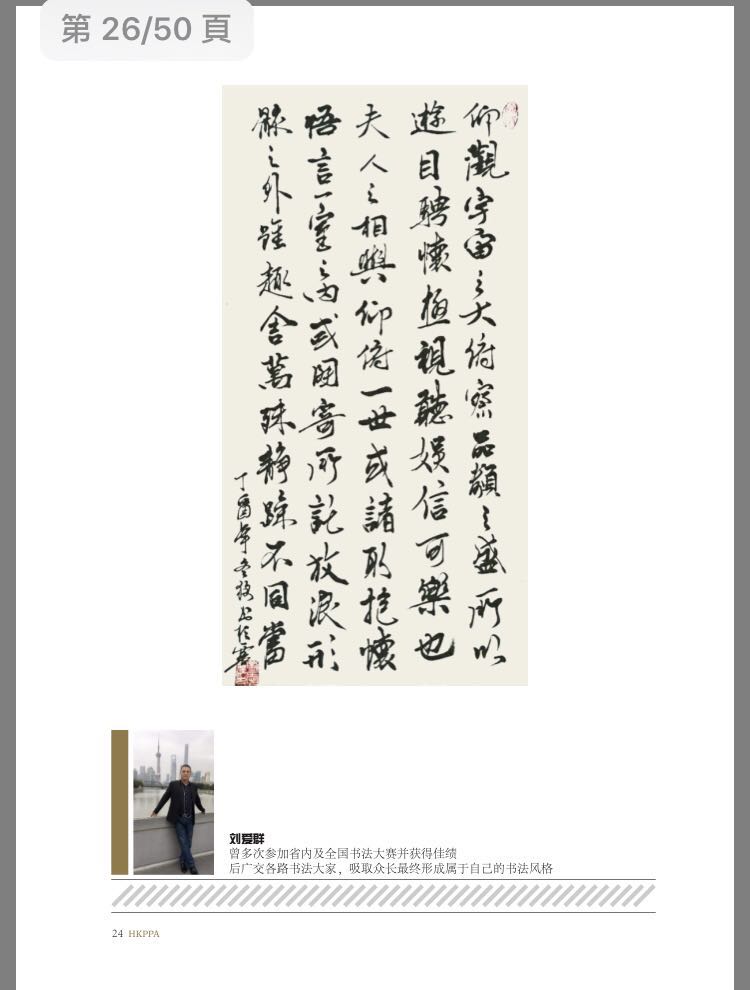 第 26/50 頁
仰觀宇宙之大俯察品類之盛所以
遊目騁懷極視聽娛信可樂也
夫人之相與仰俯一世或諸取抱懷
悟言一室之內或因寄所託放浪形
骸之外雖趣舍萬殊静躁不同當
丁酉年冬
刘爱群
曾多次参加省内及全国书法大赛并获得佳绩
后广交各路书法大家，吸取众长最终形成属于自己的书法风格
24 HKPPA